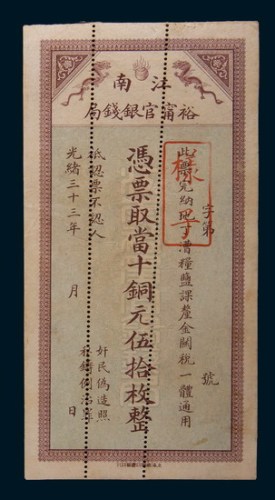 江南
裕甯官銀錢局
字第 號
此票完納地丁漕糧鹽課釐金關稅一體通用
樣字
憑票取當十銅元伍拾枚整
祗認票不認人
奸民偽造照私鑄例治罪
光緒三十三年 月 日